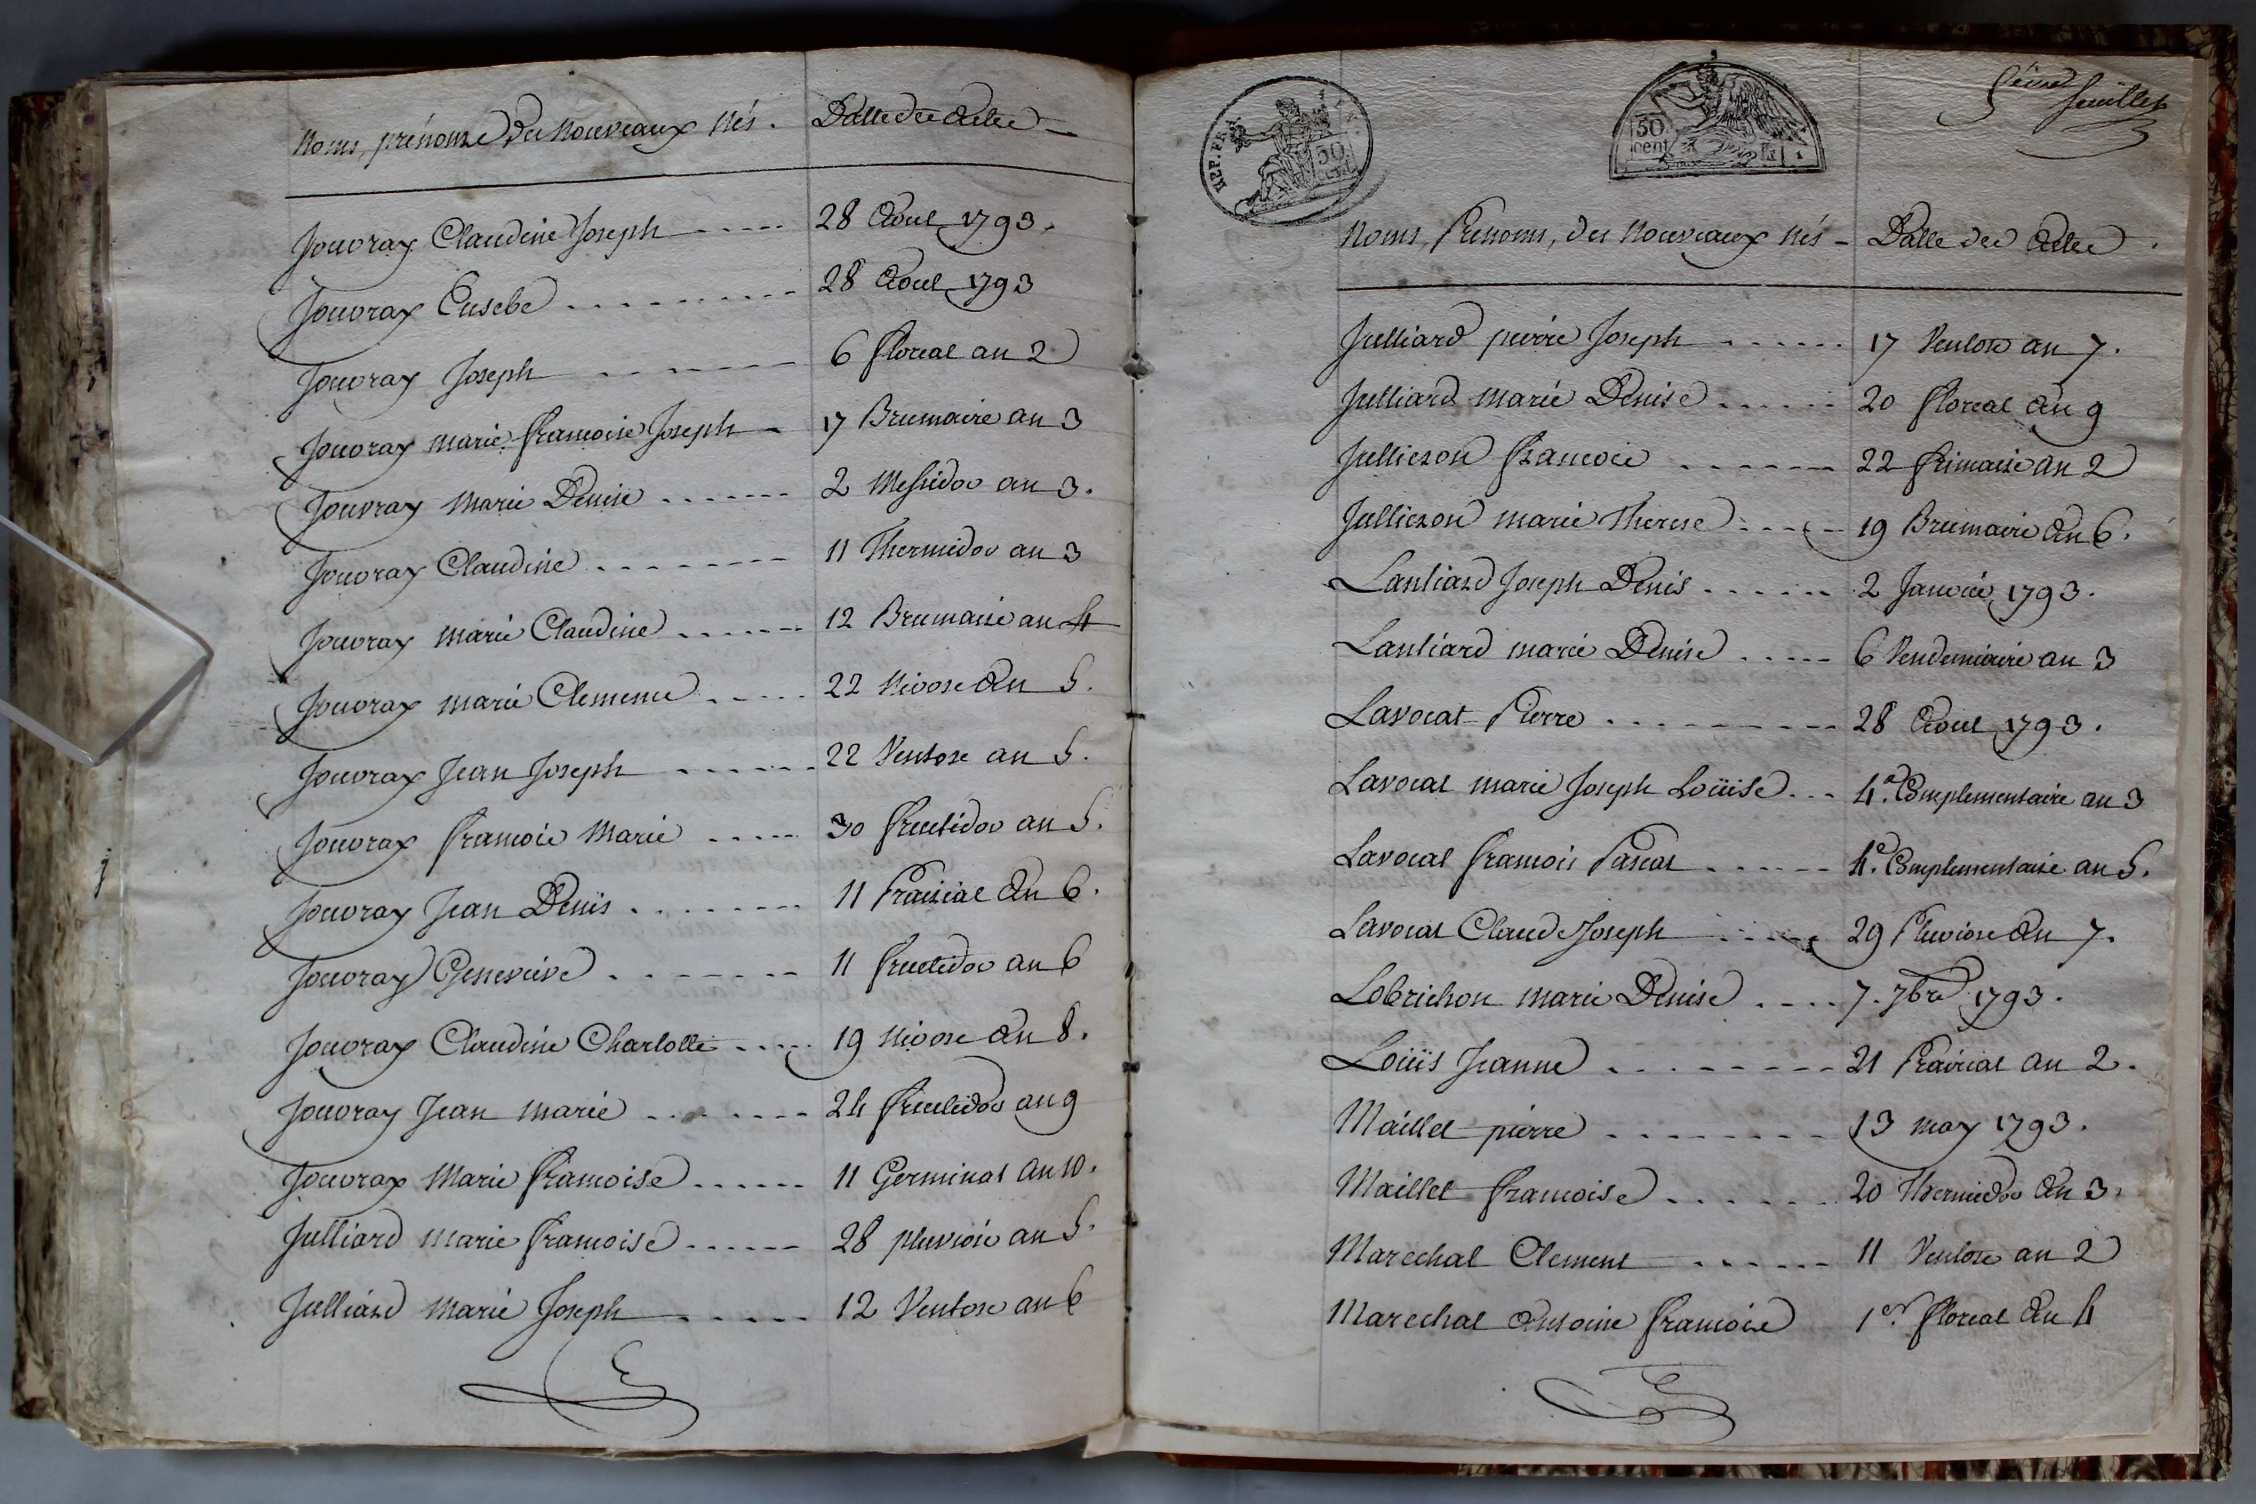 Noms, prénoms des Nouveaux Nés. Datte des actes
Jouvray Claudine Joseph ..... 28 Aout 1793.
Jouvray Eusebe ......... 28 Aout 1793
Jouvray Joseph ....... 6 floreal an 2
Jouvray marie françoise Joseph - 17 Brumaire an 3
Jouvray Marie Denise ....... 2 Messidor an 3.
Jouvray Claudine ........ 11 Thermidor an 3
Jouvray marie Claudine ....... 12 Brumaire an 4
Jouvray marie Clemence ..... 22 Nivose an 5.
Jouvray Jean Joseph ...... 22 Ventose an 5.
Jouvray francois Marie ..... 30 fructidor an 5.
Jouvray Jean Denis ........ 11 Prairial an 6.
Jouvray Genevieve ....... 11 fructidor an 6
Jouvray Claudine Charlotte ..... 19 Nivose an 8.
Jouvray Jean marie ....... 24 fructidor an 9
Jouvray Marie francoise ...... 11 Germinal an 10.
Julliard marie francoise ...... 28 pluviose an 5.
Julliard marie Joseph ..... 12 Ventose an 6
REP. FRA.
50
cent
50
cent
feuillet
Noms, Prenoms, des Nouveaux Nés - Datte des Actes.
Julliard pierre Joseph ...... 17 Ventose an 7.
Julliard marie Denise ...... 20 floreal an 9
Jullieron francois ...... 22 frimaire an 2
Jullieron marie Therese .... 19 Brumaire an 6.
Lanliard Joseph Denis ...... 2 Janvier 1793.
Lanliard marie Denise ..... 6 Vendemiaire an 3
Lavocat Pierre ......... 28 Aout 1793.
Lavocat marie Joseph Loüise ... 4e. Complementaire an 3
Lavocat francois Pascal ...... 4e. Complementaire an 5.
Lavocat Claude Joseph ..... 29 Pluviose an 7.
Lobrichon marie Denise .... 7. 7bre 1793.
Loüis Jeanne ........ 21 Prairial an 2.
Maillet pierre ........ 13 may 1793.
Maillet francoise ...... 20 Thermidor an 3.
Marechal Clement ...... 11 Ventose an 2
Marechal Antoine francois 1er. floreal an 4